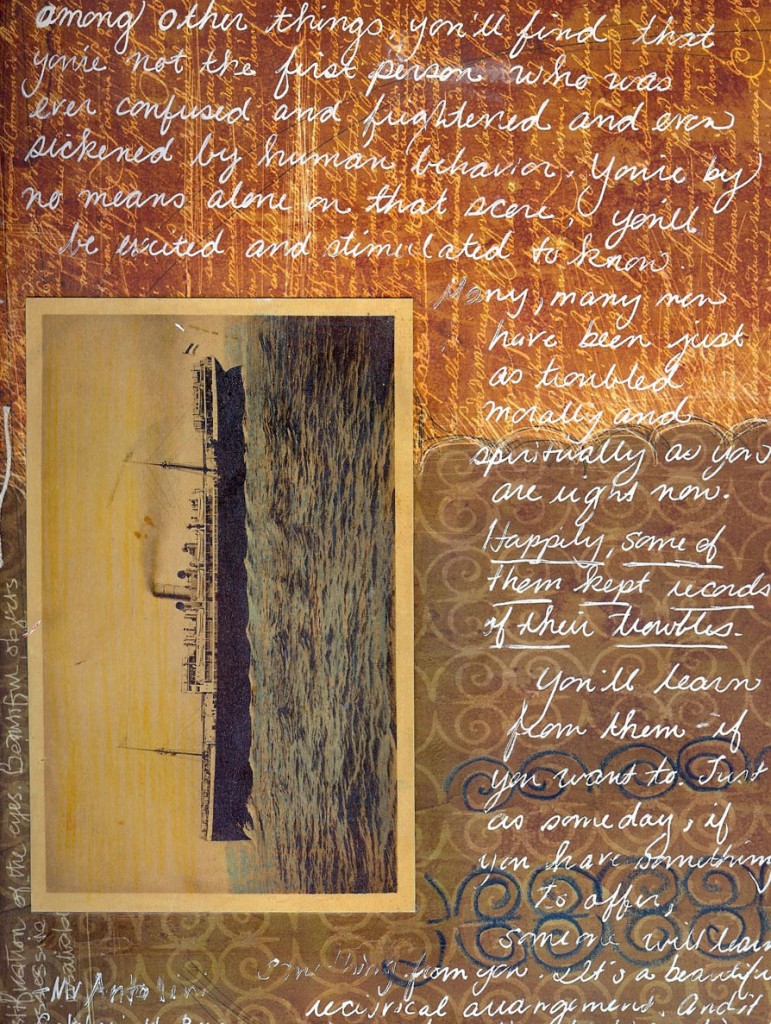 among other things, you'll find that
you're not the first person who was
ever confused and frightened and even
sickened by human behavior. You're by
no means alone on that score, you'll
be excited and stimulated to know.
Many, many men
have been just
as troubled
morally and
spiritually as you
are right now.
Happily, some of
them kept records
of their troubles.
You'll learn
from them - if
you want to. Just
as someday, if
you have something
to offer,
someone will learn
something from you. It's a beautiful
reciprical arrangement. And it
Mr Antolini
of the eyes. Beautiful objects